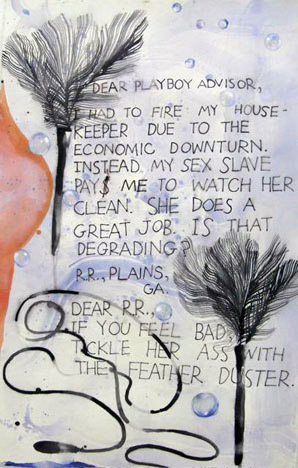 DEAR PLAYBOY ADVISOR,
I HAD TO FIRE MY HOUSE-
KEEPER DUE TO THE
ECONOMIC DOWNTURN.
INSTEAD MY SEX SLAVE
PAYS ME TO WATCH HER
CLEAN. SHE DOES A
GREAT JOB. IS THAT
DEGRADING?
R.R., PLAINS,
GA.
DEAR R.R.,
IF YOU FEEL BAD,
TICKLE HER ASS WITH
THE FEATHER DUSTER.